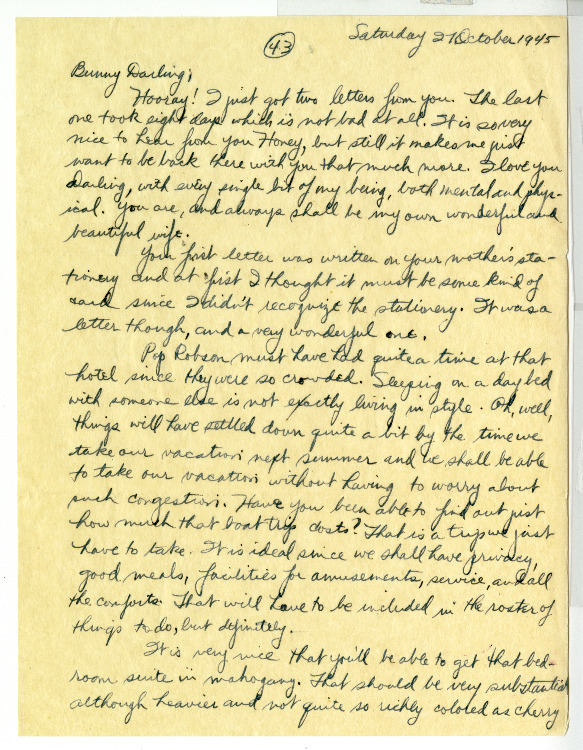 43
Saturday 27 October 1945
Bunny Darling,
Hooray! I just got two letters from you. The last
one took eight days which is not bad at all. It is so very
nice to hear from you Honey, but still it makes me just
want to be back there with you that much more. I love you
Darling, with every single bit of my being, both mental and phys-
ical. You are, and always shall be my own wonderful and
beautiful wife.
Your first letter was written on your mother's sta-
tionery and at first I thought it must be some kind of
card since I didn't recognize the stationery. It was a
letter though, and a very wonderful one.
Pop Robson must have had quite a time at that
hotel since they were so crowded. Sleeping on a day bed
with someone else is not exactly living in style. Oh, well,
things will have settled down quite a bit by the time we
take our vacation next summer and we shall be able
to take our vacation without having to worry about
such congestion. Have you been able to find out just
how much that boat trip costs? That is a trip we just
have to take. It is ideal since we shall have privacy,
good meals, facilities for amusements, service, and all
the comforts. That will have to be included in the roster of
things to do, but definitely.
It is very nice that you'll be able to get that bed-
room suite in mahogany. That should be very substantial
although heavier and not quite so richly colored as cherry